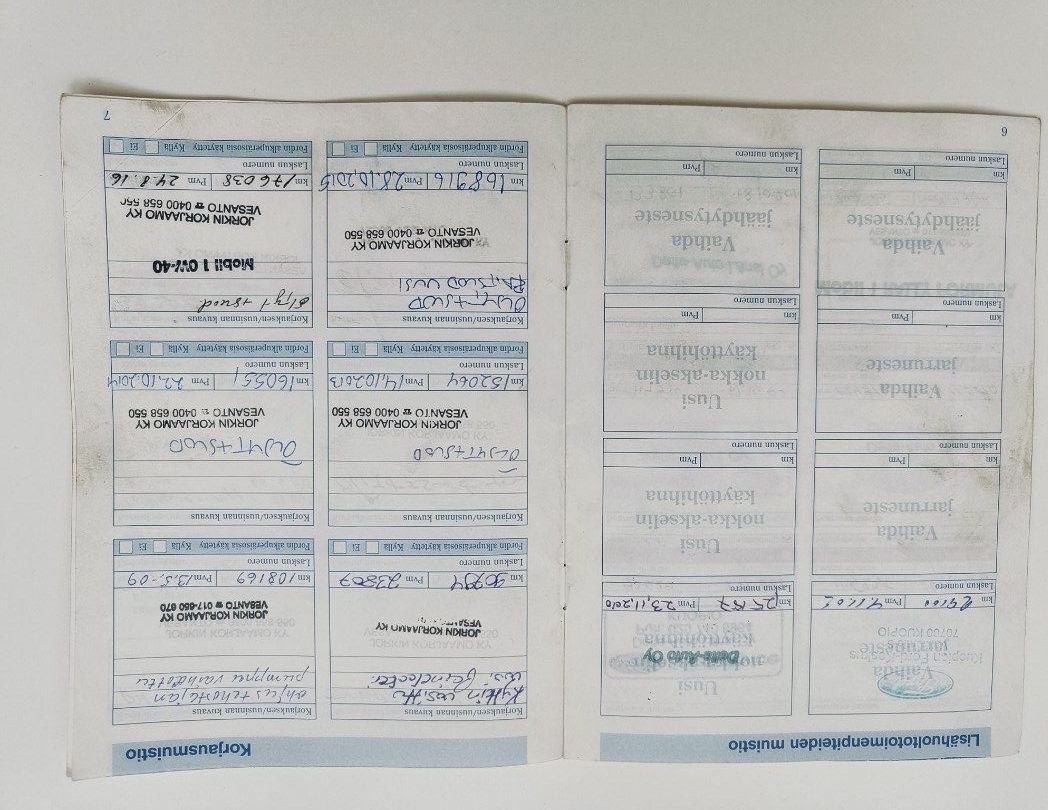 Lisähuoltotoimenpiteiden muistio
Vaihda
jarruneste
70700 KUOPIO
km Pvm
Laskun numero
Uusi
nokka-akselin
käyttöhihna
Delta-Auto Oy
km Pvm 23.11.2010
Laskun numero
Vaihda
jarruneste
km Pvm
Laskun numero
Uusi
nokka-akselin
käyttöhihna
km Pvm
Laskun numero
Vaihda
jarruneste
km Pvm
Laskun numero
Uusi
nokka-akselin
käyttöhihna
km Pvm
Laskun numero
Vaihda
jäähdytysneste
km Pvm
Laskun numero
Vaihda
jäähdytysneste
km Pvm
Laskun numero
6
Korjausmuistio
Korjauksen/uusinnan kuvaus
Kytkin
JORKIN KORJAAMO KY
km 90794 Pvm
Laskun numero
Fordin alkuperäisosia käytetty Kyllä Ei
Korjauksen/uusinnan kuvaus
ohjustehostajan
pumppu vaihdettu
JORKIN KORJAAMO KY
VESANTO ☎ 017-650 870
km 108169 Pvm 13.5.-09
Laskun numero
Fordin alkuperäisosia käytetty Kyllä Ei
Korjauksen/uusinnan kuvaus
ÖLJYT+SUOD
JORKIN KORJAAMO KY
VESANTO ☎ 0400 658 550
km 152064 Pvm 14.10.2013
Laskun numero
Fordin alkuperäisosia käytetty Kyllä Ei
Korjauksen/uusinnan kuvaus
ÖLJYT+SUOD
JORKIN KORJAAMO KY
VESANTO ☎ 0400 658 550
km 160551 Pvm 22.10.2014
Laskun numero
Fordin alkuperäisosia käytetty Kyllä Ei
Korjauksen/uusinnan kuvaus
ÖLJYT+SUOD
JORKIN KORJAAMO KY
VESANTO ☎ 0400 658 550
km 168916 Pvm 28.10.2015
Laskun numero
Fordin alkuperäisosia käytetty Kyllä Ei
Korjauksen/uusinnan kuvaus
öljyt+suod
Mobil 1 0W-40
JORKIN KORJAAMO KY
VESANTO ☎ 0400 658 550
km 176038 Pvm 24.8.16
Laskun numero
Fordin alkuperäisosia käytetty Kyllä Ei
7